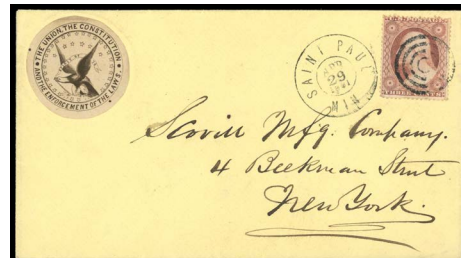 ★ THE UNION, THE CONSTITUTION ★
AND THE ENFORCEMENT OF THE LAWS.
SAINT PAUL
APR
29
1861
MIN
THREE CENTS
Scovill Mfg. Company.
4 Beekman Street
New York.